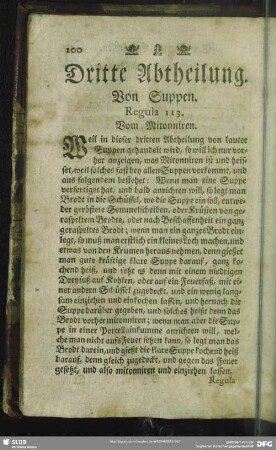 100
Dritte Abtheilung.
Von Suppen.
Regula 113.
Vom Mitonniren.
Weil in dieser dritten Abtheilung von lauter
Suppen gehandelt wird, so will ich nur vor-
her anzeigen, was Mitonniren ist und heis-
set, weil solches fast bey allen Suppen vorkommt, und
aus folgenden bestehet: Wenn man eine Suppe
verfertiget hat, und bald anrichten will, so legt man
Brodt in die Schüssel, wo die Suppe ein soll, entwe-
der geröstete Semmelscheiben, oder Krüsten von ge-
raspeltem Brodte, oder nach Beschaffenheit ein ganz
geraspeltes Brodt; wenn man ein ganzes Brodt ein-
legt, so muß man erstlich ein kleines Loch machen, und
etwas von den Krumen heraus nehmen, denn gießet
man gute kräftige klare Suppe darauf, ganz ko-
chend heiß, und setzt es denn mit einem niedrigen
Dreyfuß auf Kohlen, oder auf ein Feuerfaß, mit ei-
ner andern Schüssel zugedeckt, und ein wenig lang-
sam einziehen und einkochen lassen, und hernach die
Suppe darüber gegeben, und solches heißt denn das
Brodt vorher mitonniren; wenn man aber die Sup-
pe in einer Porcellainkumme anrichten will, wel-
che man nicht aufs Feuer setzen kann, so legt man das
Brodt darein, und gießt die klare Suppe kochend heiß
darauf, denn gleich zugedeckt, und gegen das Feuer
gesetzt, und also mitonniren und einziehen lassen.
Regula
SLUB
DFG